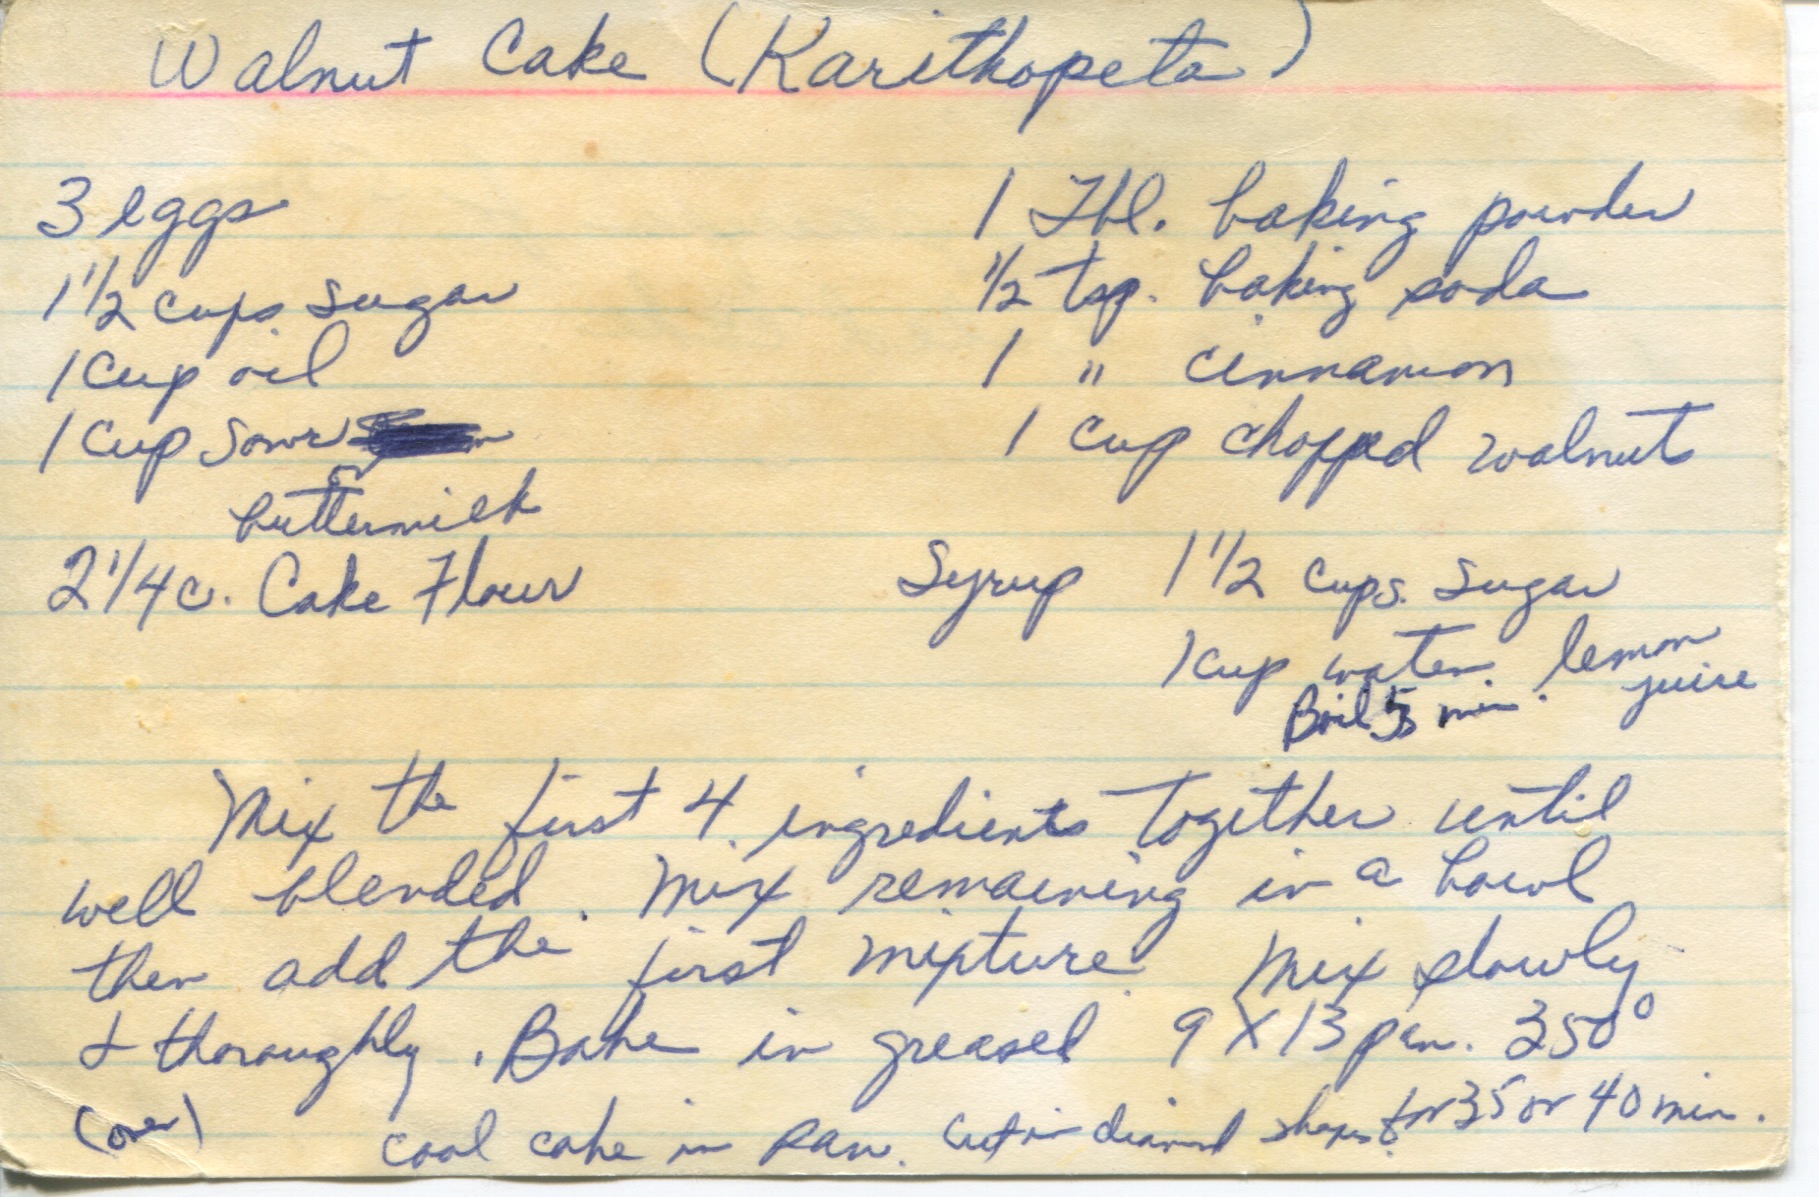 Walnut Cake (Karithopeta)
3 eggs
1 1/2 cups sugar
1 cup oil
1 cup sour
or
buttermilk
2 1/4 c. Cake Flour
1 Tbl. baking powder
1/2 tsp. baking soda
1 " cinnamon
1 cup chopped walnuts
Syrup 1 1/2 cups. sugar
1 cup water. lemon
juice
Boil 5 min.
Mix the first 4 ingredients together until
well blended. Mix remaining in a bowl
then add the first mixture. Mix slowly
& thoroughly. Bake in greased 9 X 13 pan. 350°
for 35 or 40 min.
(over) cool cake in pan. Cut in diamond shapes.